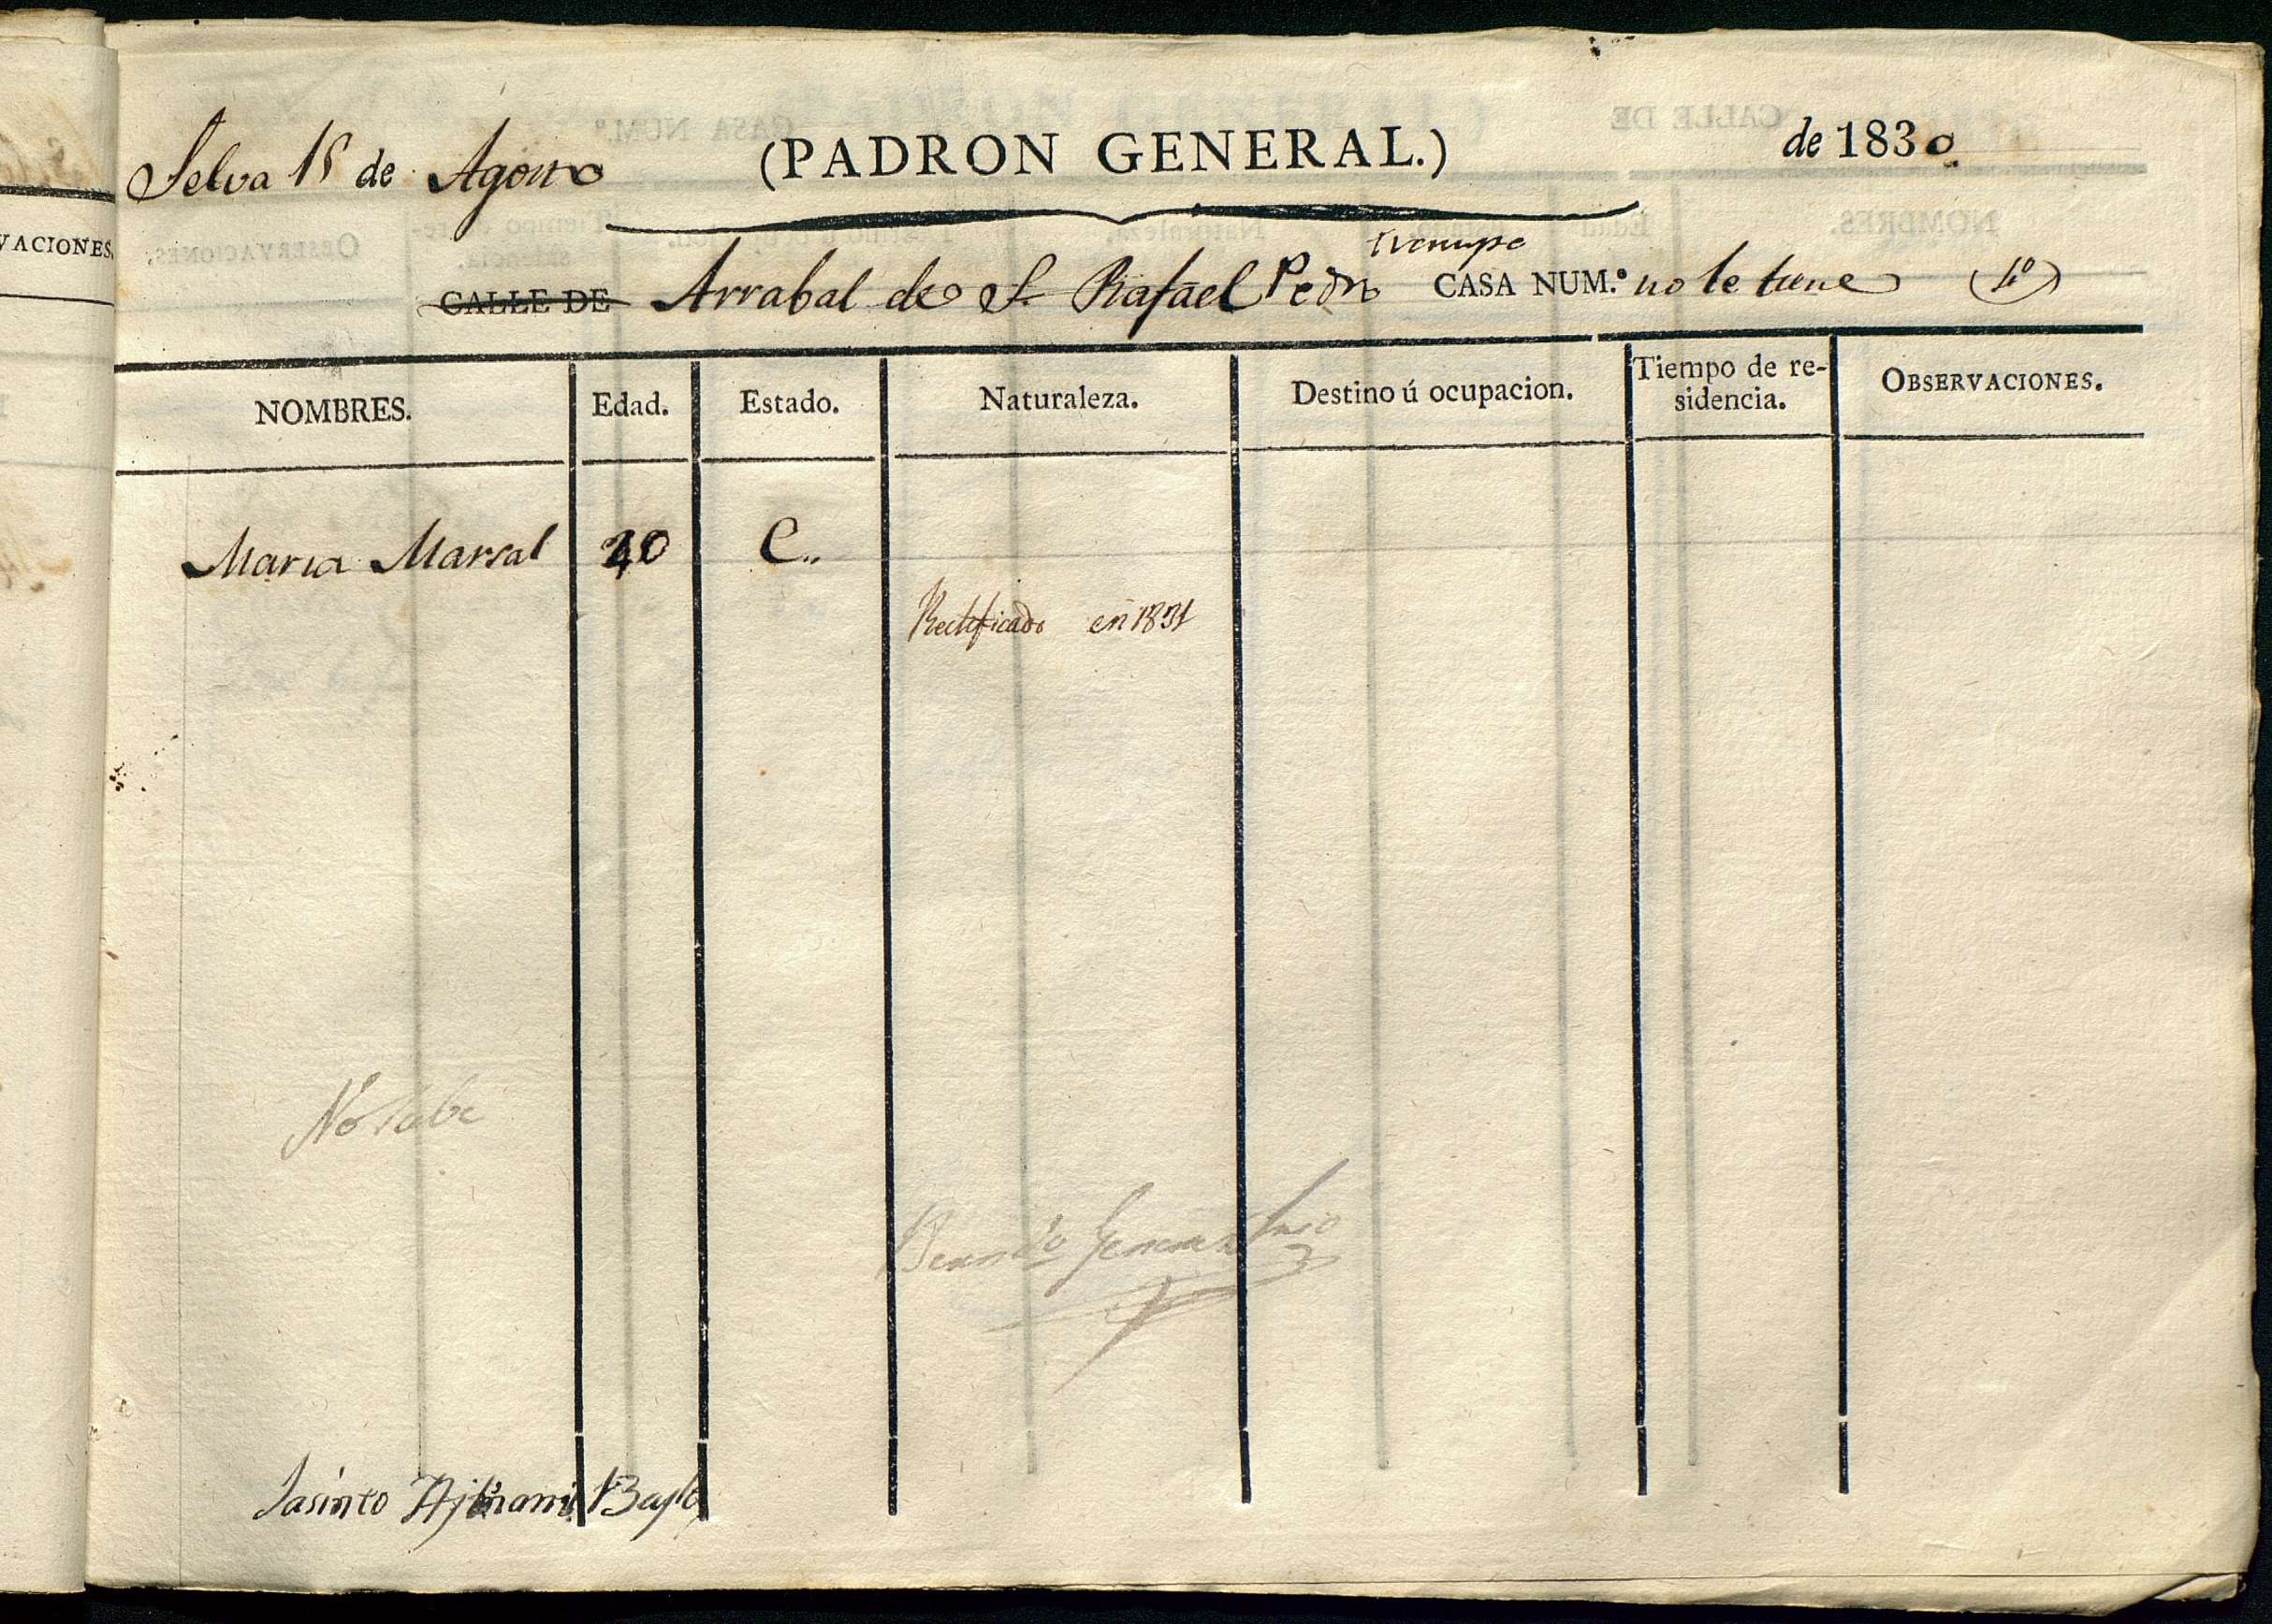 VACIONES.
Selva 18 de Agosto (PADRON GENERAL.) de 1830
CALLE DE Arrabal de S. Rafael Pedro CASA NUM.º no le tiene
NOMBRES. Edad. Estado. Naturaleza. Destino ú ocupacion. Tiempo de re-
sidencia. OBSERVACIONES.
Maria Marsal 40 C..
Rectificado en 1831
No sabe
Jasinto Bayle